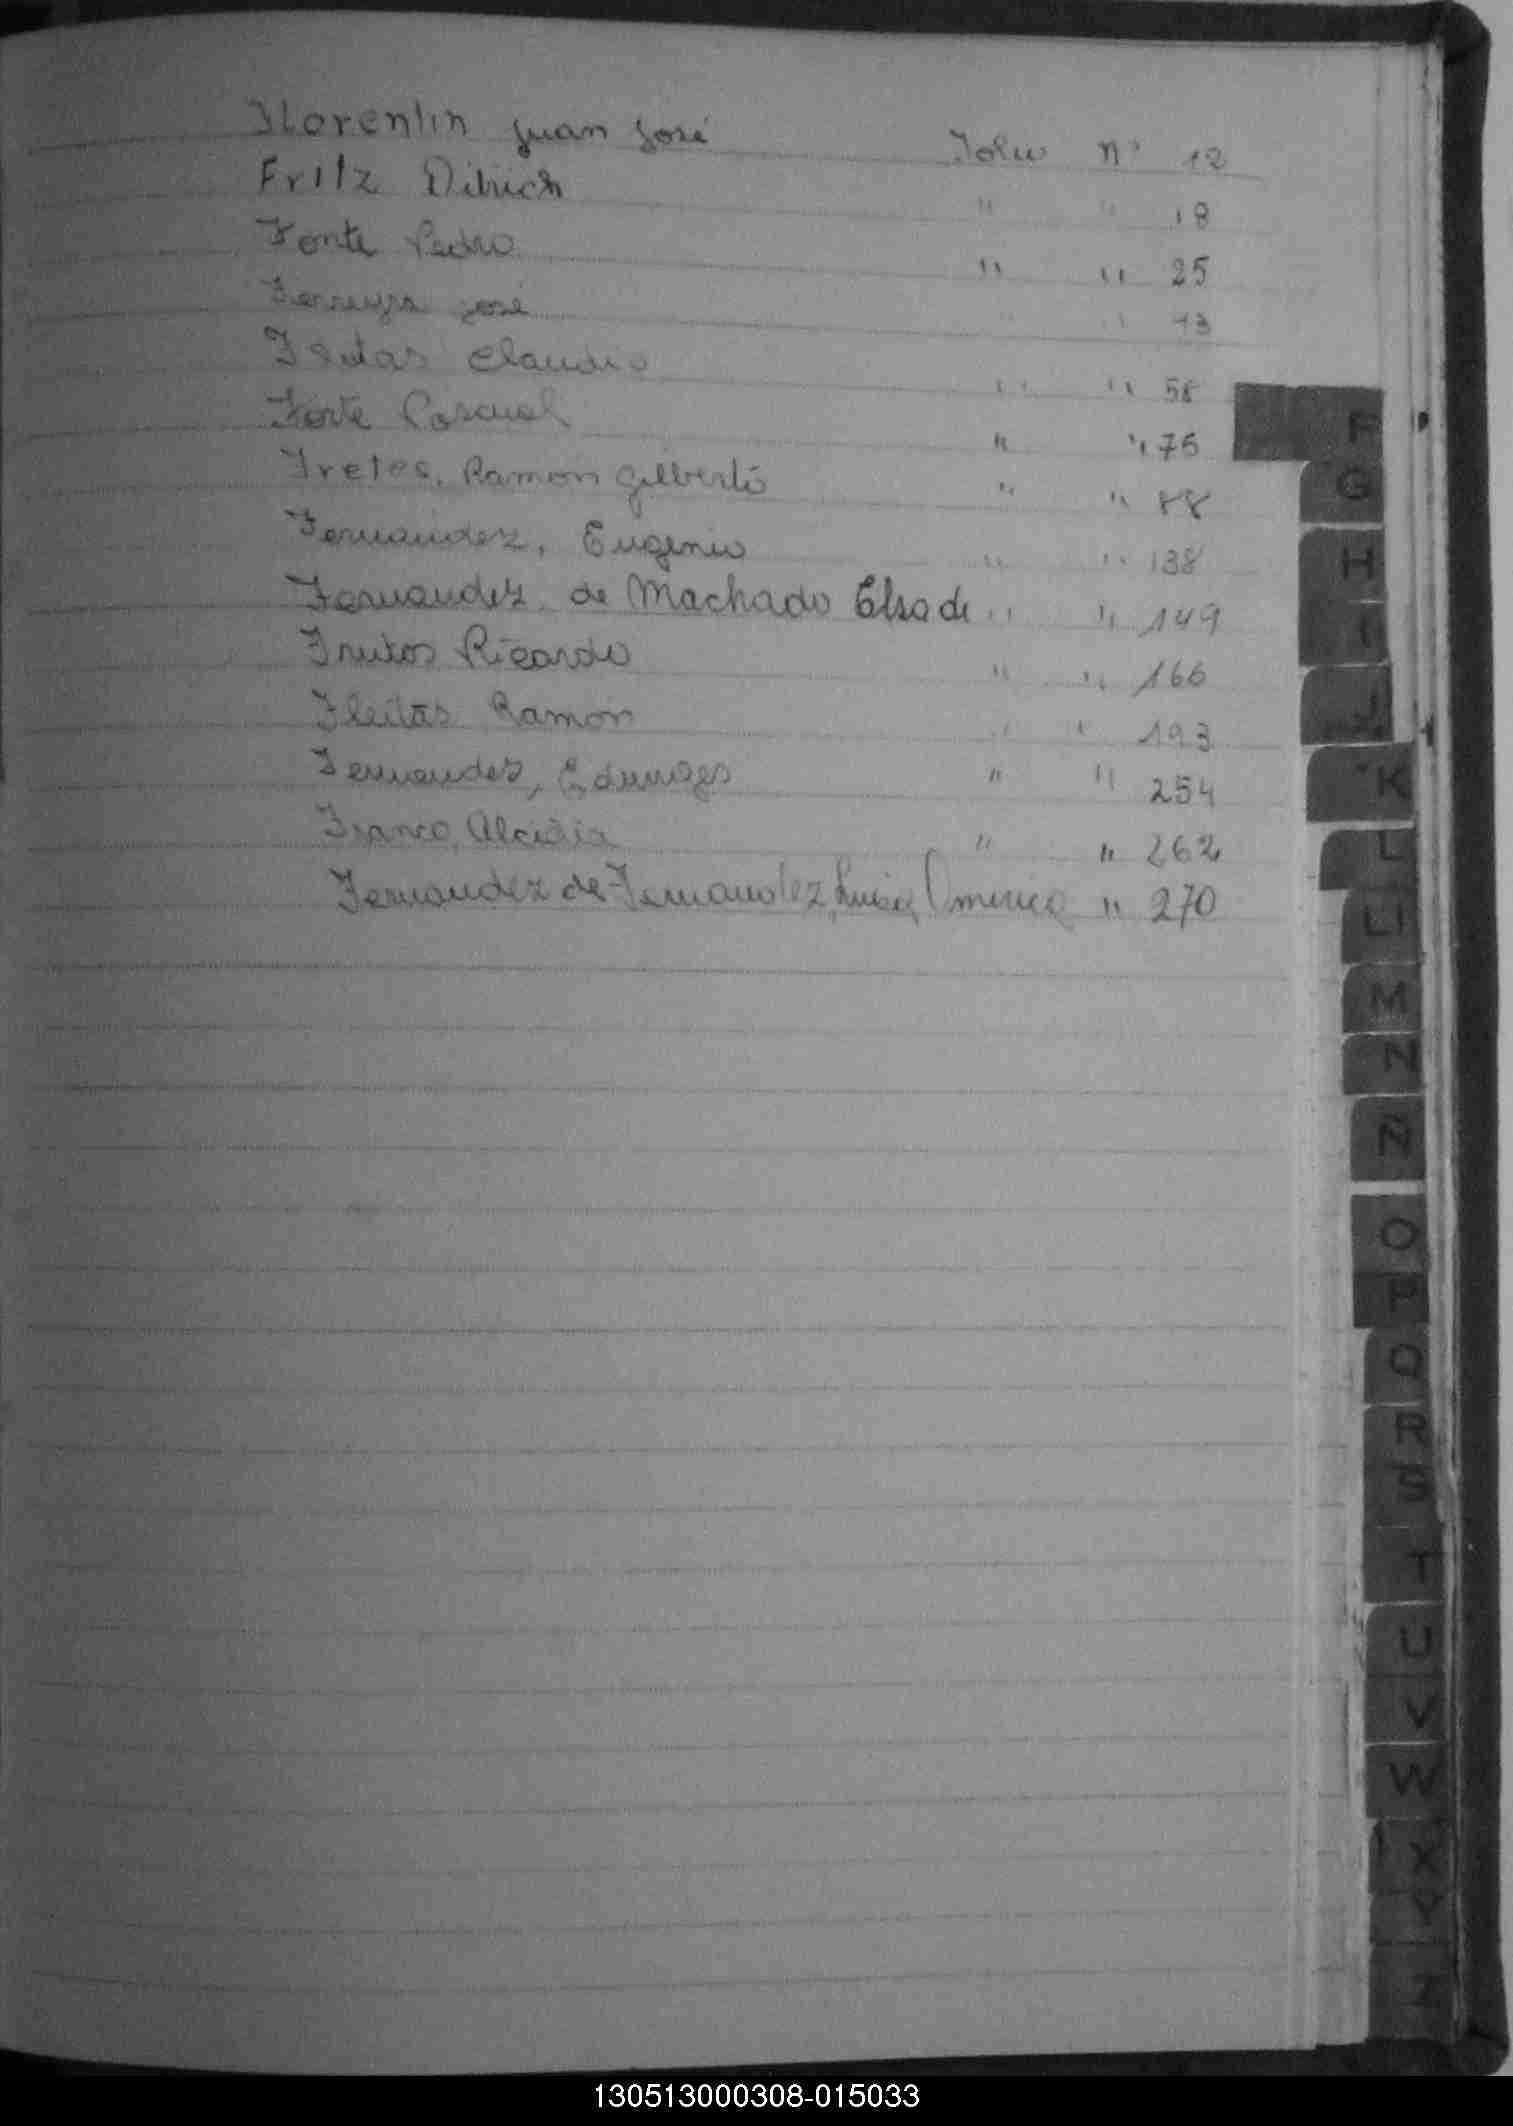 Florentin Juan José Folio Nº 12
Fritz Ditrich " " 18
Fonte Pedro " " 25
Ferreyra José " " 43
Claudio " " 58
Forte Pascual " " 75
Fretes, Ramon Gilberto " " 88
Fernandez, Eugenio " " 138
Fernandez de Machado Elsa de " " 149
Frutos Ricardo " " 166
Fleitas Ramon " " 193
Fernandez, " " 254
Franco, Alcidia " " 262
Fernandez de Fernandez, Luisa America " 270
F
G
H
I
J
K
L
Ll
M
N
Ñ
O
P
Q
R
S
T
U
V
W
X
Y
Z
130513000308-015033